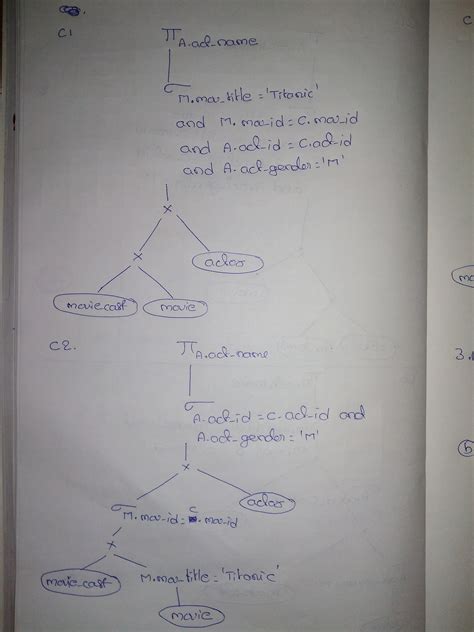 C1
π A.act_name
σ M.mov_title = 'Titanic'
and M.mov_id = C.mov_id
and A.act_id = C.act_id
and A.act_gender = 'M'
×
×
actor
movie_cast
movie
C2.
π A.act_name
σ A.act_id = C.act_id and
A.act_gender = 'M'
×
actor
σ M.mov_id = C.mov_id
×
movie_cast
M.mov_title = 'Titanic'
movie
C
mo
3.
b